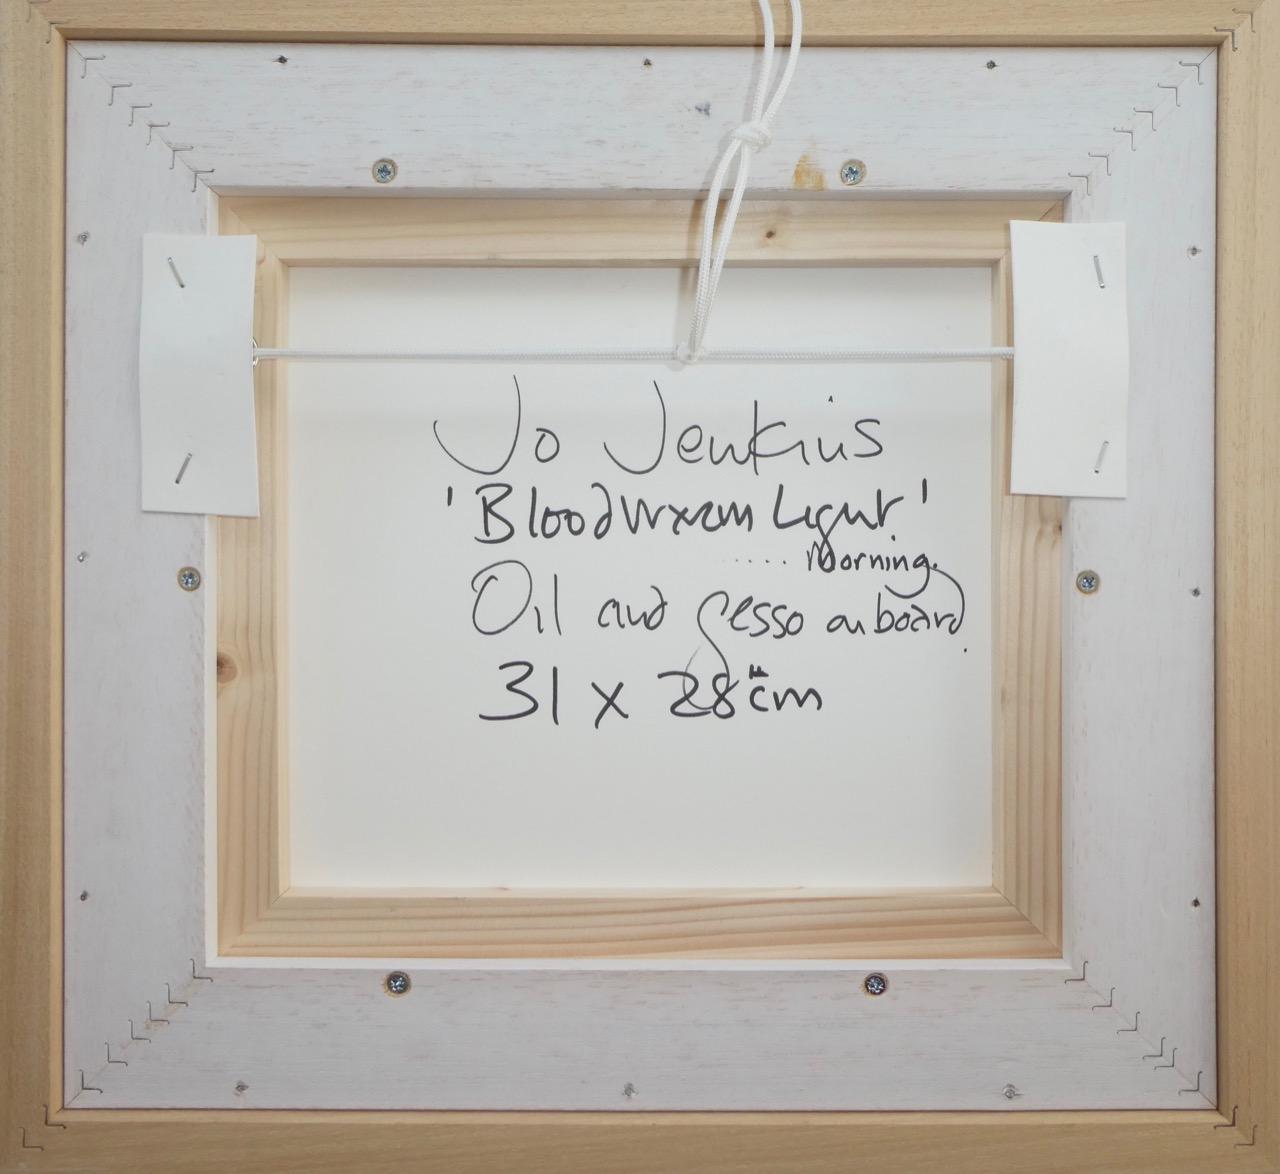 Jo Jenkins
'Bloodwxrm Light'
.... Morning.
Oil and gesso on board.
31 x 28 cm